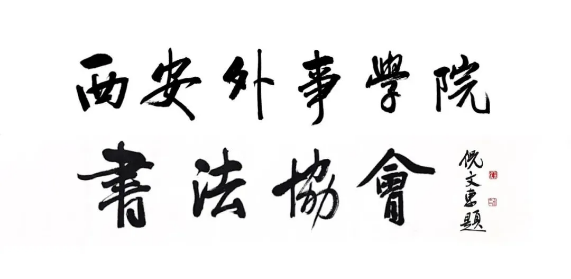 西安外事學院
書法協會
倪文東題